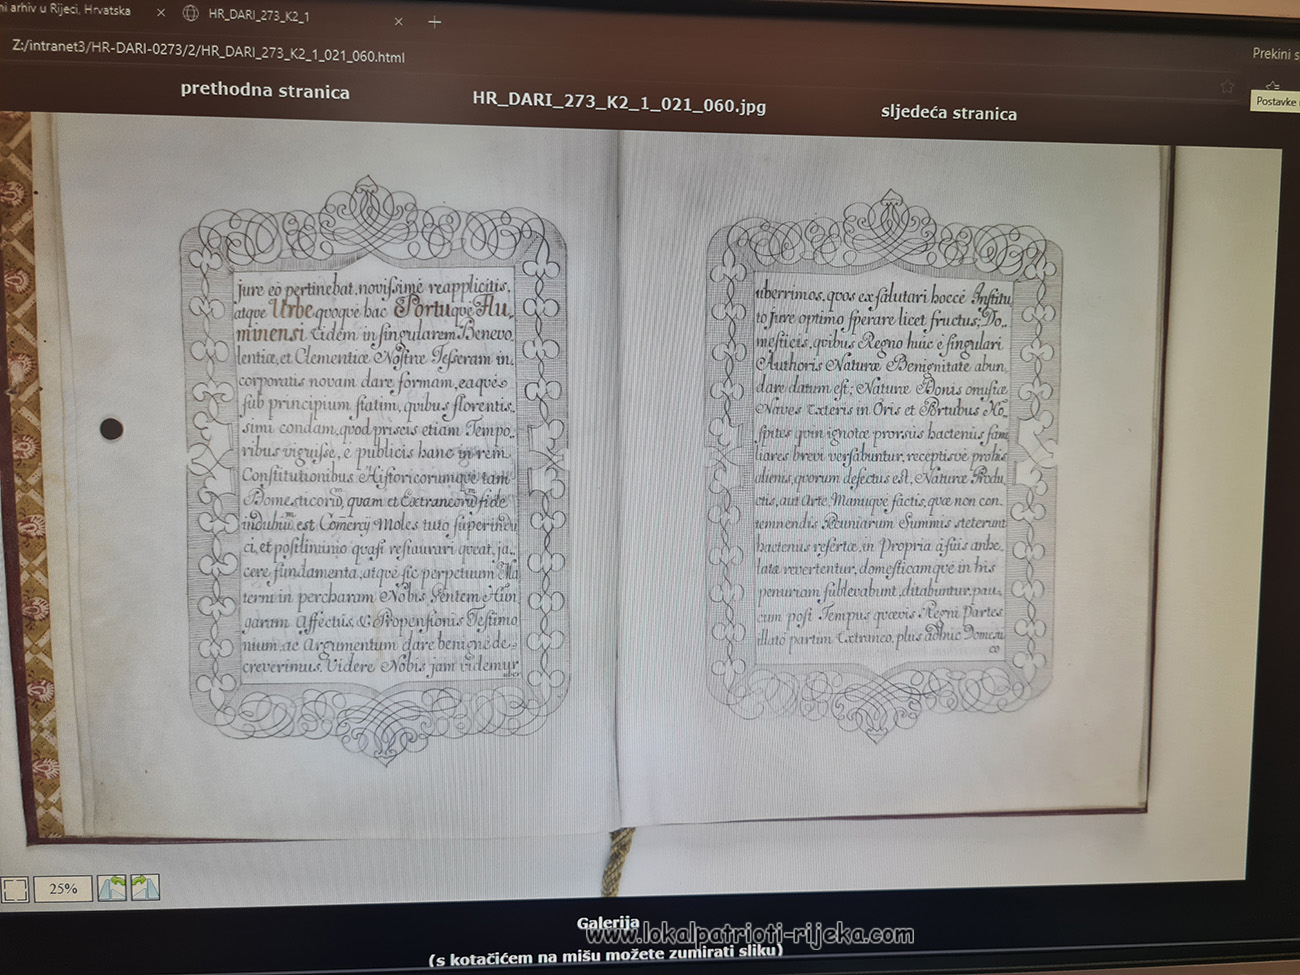 ni arhiv u Rijeci, Hrvatska
HR_DARI_273_K2_1
Z:/intranet3/HR-DARI-0273/2/HR_DARI_273_K2_1_021_060.html
Prekini s
Postavke
prethodna stranica
HR_DARI_273_K2_1_021_060.jpg
sljedeća stranica
jure eò pertinebat, noviſsimè reapplicitis,
atque Urbe quoque hac Portuque Flu-
minensi eidem in ſingularem Benevo
lentiæ, et Clementiæ Noſtræ Teſseram in
corporatis novam dare formam, eaquè
ſub principium ſtatim, quibus florentis,
simi condam, quod priscis etiam Tempo-
ribus viguiſse, e publicis hanc in rem
Conſtitutionibus Hiſtoricorumquè tam
Domesticorũ, quam et Extraneorũ fide
indubiũ est Comercÿ Moles tutò ſuperindu
ci, et poſtliminio quaſi reſtaurari queat, ja-
cere fundamenta, atquè ſic perpetuum Ma
terni in percharam Nobis Gentem Hun
garam Affectûs, & Propenſionis Teſtimo
nium, ac Argumentum dare benignè de-
creverimus. Videre Nobis jam videmur
uber
uberrimos, quos ex ſalutari hoccè Inſtitu
to Jure optimo ſperare licet fructus; Do-
meſticis, quibus Regno huic è ſingulari
Authoris Naturæ Benignitate abun,
dare datum eſt; Naturæ Donis onuſtæ
Naves Exteris in Oris et Portubus Ho-
ſpites quin ignotæ prorsus hactenus fam
liares brevi verſabuntur, receptisvè probis
alienis, quorum defectus est, Naturæ Produ
ctis, aut Arte, Manuquè factis, quæ non con
temnendis Pecuniarum Summis steterunt
hactenus refertæ, in Propria
revertentur, domeſticamquè in his
penuriam ſubłevabunt, ditabuntur, pau-
cum poſt Tempus quævis Regni Partes
illato partim Extraneo, plus adhuc Domeſti
co
25%
Galerija
www.lokalpatrioti-rijeka.com
(s kotačićem na mišu možete zumirati sliku)